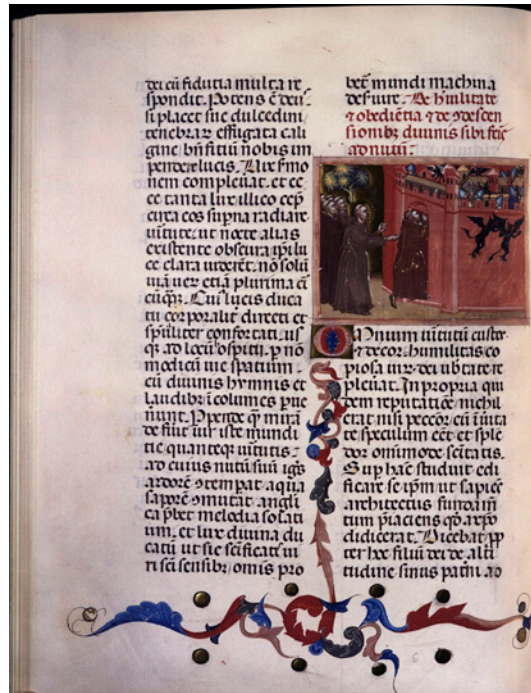 dei cū fidutia multa re
spondit. Potens ē deu-
si placet sue dulcedini
tenebrar effugata cali
gine bñfitiū nobis im
pendere lucis. Vix s̄mo
nem compleuat. et ec
ce tanta lux illico cep
circa eos sup̄na radiare
uirtute. ut nocte alias
existente obscura ip̄i lu
ce clara uiderēt. nō solū
uia uer etiā plurima ci
cūq3. Cui lucis duca
tu corporalit directi et
sp̄ualiter confortati. us
q3 ad locū hospitii. p nō
modicū uie spatium
cū diuinis hymnis et
laudibz incolumes pue
nerunt. Ppende q̄ mirā
de fuit uir iste mundi
tie quanteqz uirtutis
ad cuius nutū suū ignis
ardorē ɔtemperat. aqua
saporē ɔmutat. angli
ca p̄bet melodia solati
um. et lux diuina du
catū ut sic sc̄i ficate ui
ri sc̄i sensibz omnis pro
bet mundi machina
deseruire. De humilitate
⁊ obediētia ⁊ de ɔdescen
sionibz diuinis sibi fc̄is
ad nutum.
Omnium uirtutū custos
⁊ decor. humilitas co
piosa uirz dei ubtate re
pleuat. In propria qui
dem reputatiōe nichil
erat nisi peccōr cū ī uita
te speculum eēt et splē
dor omimode sc̄itatis.
Sup hāc studuit edi
ficare se ip̄m ut sapiēs
architectus fundamē
tum p̄iaciens qd a xp̄o
didicerat. Dicebat pp
ter hec filiū dei de alti
tudine sinus patnı ad
6